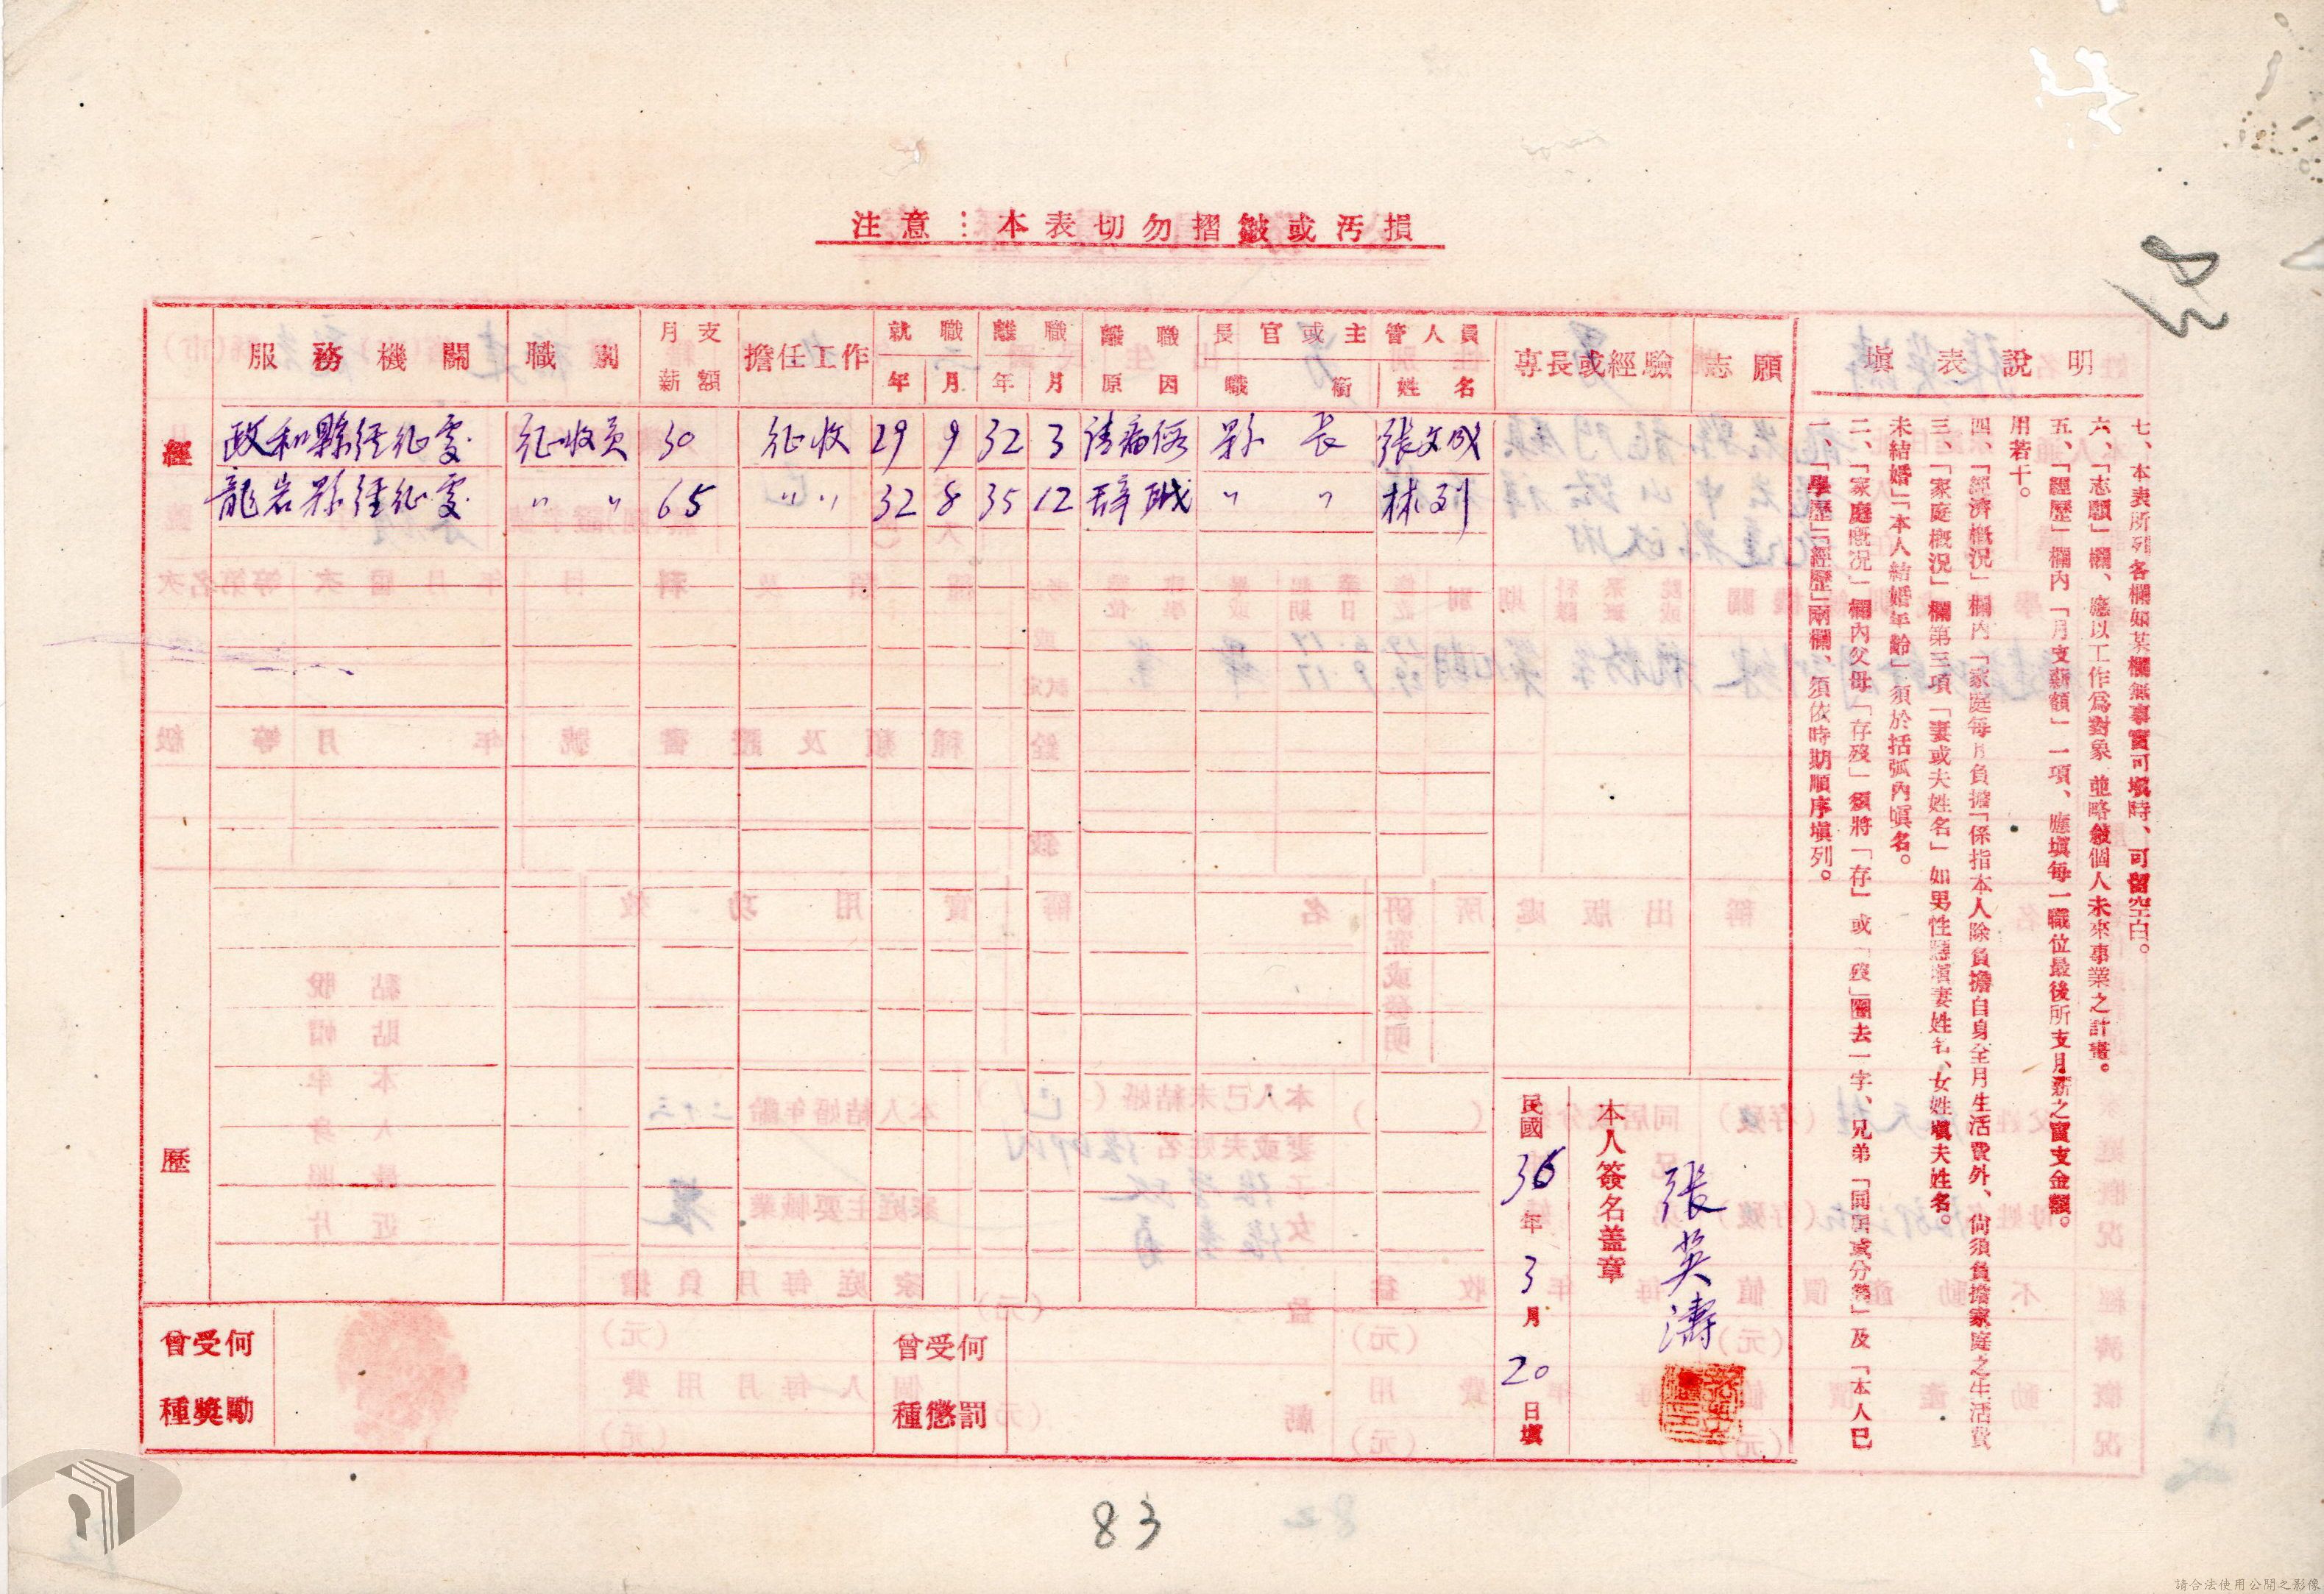 注意：本表切勿摺皺或汚損
83
經歷
服務機關 職別 月支薪額 擔任工作 就職 年 月 離職 年 月 離職原因 長官或主管人員 職銜 姓名 專長或經驗 志願
政和縣經征處 征收員 30 征收 29 9 32 3 請病假 縣長 張文成
龍岩縣經征處 〃 〃 65 〃 〃 32 8 35 12 辞職 〃 〃 林列
曾受何種獎勵
曾受何種懲罰
本人簽名盖章
張英濤
民國36年3月20日填
填表說明
一、「學歷」「經歷」兩欄、須依時期順序填列。
二、「家庭概況」欄內父母「存歿」須將「存」或「歿」圈去一字、兄弟「同居或分爨」及「本人已
未結婚」「本人結婚年齡」須於括弧內填名。
三、「家庭概況」欄第三項「妻或夫姓名」如男性應填妻姓名、女姓填夫姓名。
四、「經濟概況」欄內「家庭每月負擔「係指本人除負擔自身全月生活費外、尙須負擔家庭之生活費
用若干。
五、「經歷」欄內「月支薪額」一項、應填每一職位最後所支月薪之實支金額。
六、「志願」欄、應以工作爲對象 並略敍個人未來事業之計畫。
七、本表所列各欄如某欄無事實可填時、可留空白。
83
請合法使用公開之影像